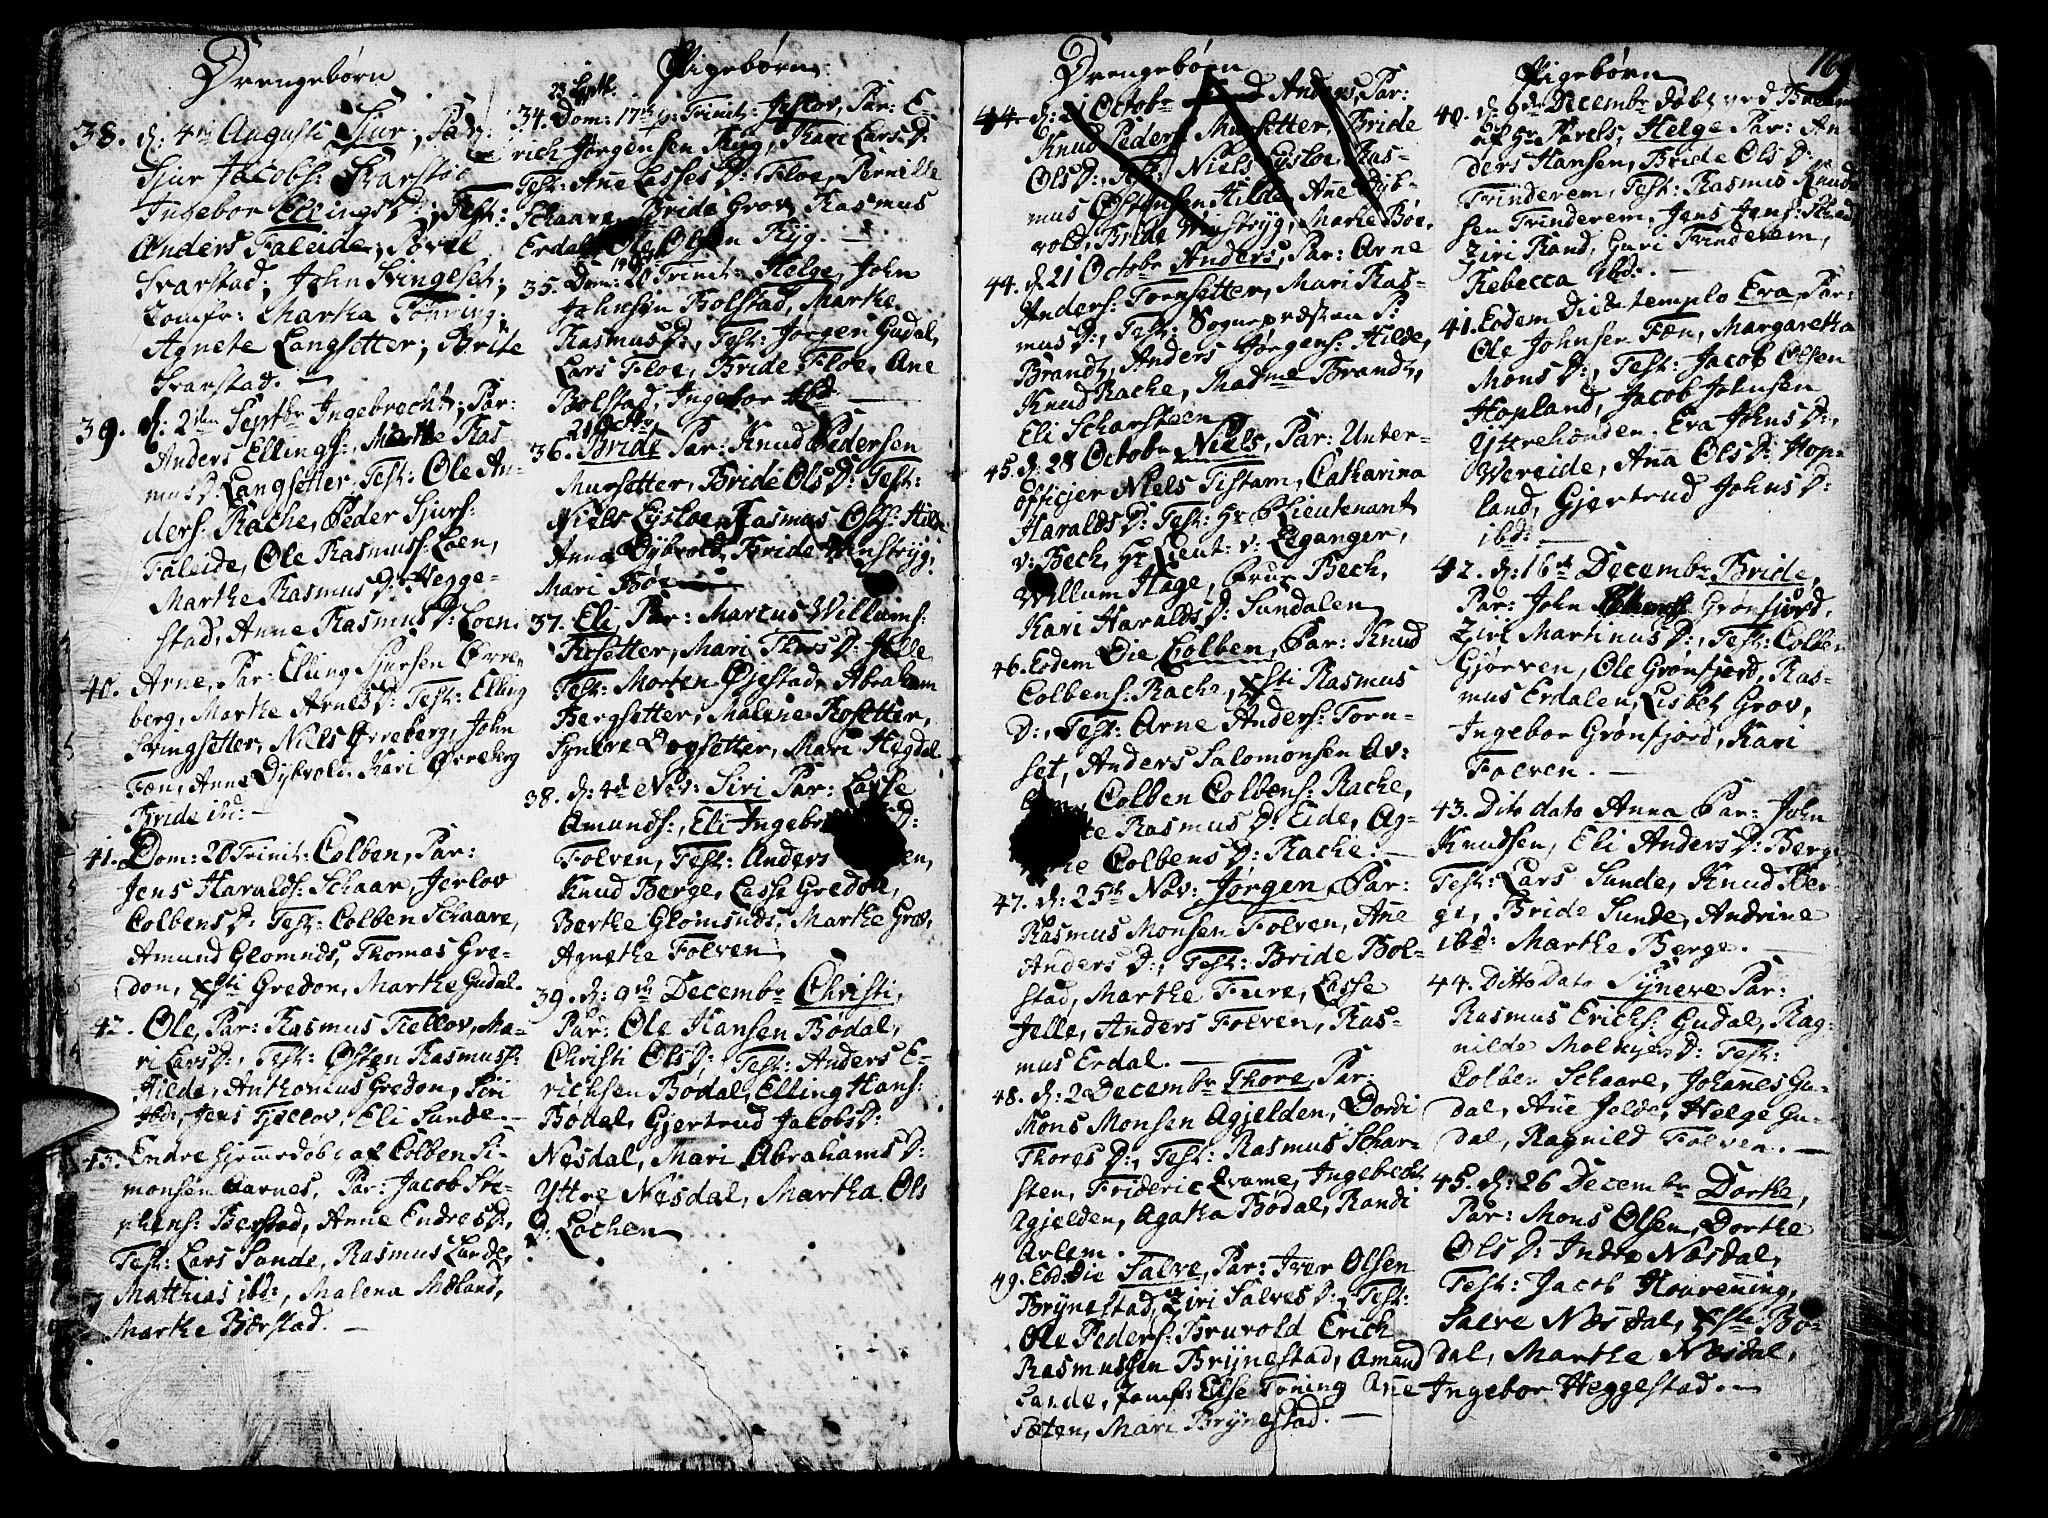 Drengebørn
38. d: 4de Augusti Sjur, Par:
Sjur Jacobs: Skarstøe
Ingebor Ellings D:, Test:
Anders Faleide, Povel
Svarstad, John Svingeset,
Comfr: Martha Tönring,
Agnete Langsetter, Brite
Svarstad. —
39. d: 2den Septbr Ingebrecht, Par:
Anders Ellings:, Marthe Ras
mus D: Langsetter, Test: Ole An-
ders: Rache, Peder Sjurs:
Faleide, Ole Rasmuss: Loen,
Marthe Rasmus D: Hegge-
stad, Anne Rasmus D: Loen.
40. Arne, Par: Elling Sjursen Ørre
berg, Marthe Arnes D: Test: Elling
Svingsetter, Niels Ørreberg, John
Fæn, Anne Dybvold, Kari Ørreberg
Bride ibd: —
41. Dom: 20 Trinit: Colben, Par:
Jens Haralds: Schaar, Jerlov
Colbens D: Test: Colben Schaare,
Amund Glomnds, Thomas Gre-
don, Xsti Gredon, Marthe Gudal.
42. Ole, Par: Rasmus Tiellov, Ma-
ri Lars D:, Test: Østen Rasmuss:
Hilde, Anthonius Gredon, Siri
ibd:, Jens Tjellov, Eli Sunde. —
43. Endre hjemmedøbt af Colben Si-
monsen Aarnes, Par: Jacob Ste-
phens: Berstad, Anne Endres D:,
Test: Lars Sunde, Rasmus Sunde,
Matthias ibd:, Malena Mæland,
Marthe Bærstad. —
Pigebørn
23 Septb.
34. Dom: 17de p: Trinit: Jerlov, Par: E-
rich Jørgensen Ryg, Kari Lars D:
Test: Ane Lasses D: Floe, Pernille
Schaare, Bride Grov, Rasmus
Erdal, Ole Olsen Ryg. —
35. Dom: 20 Trinit: Helge, John
Johnsen Bolstad, Marthe
Rasmus D:, Test: Jørgen Gudal,
Lars Floe, Bride Floe, Ane
Bolstad, Ingebor ibd: —
21 Octbr
36. Bride Par: Knud Pedersen
Mursetter, Bride Ols D: Test:
Niels Eysloe, Rasmus Østs: Hilde
Anna Dybvold, Bride Winstryg,
Mari Bøe —
37. Eli, Par: Marcus Willums:
Rosetter, Mari Thores D: Jelle
Test: Morten Øjestad, Abraham
Bergsetter, Malene Rosetter,
Synere Dogsetter, Mari Hegdal
38. d: 4de Nov: Siri Par: Lasse
Amunds:, Eli Ingebr D:
Folven, Test: Anders en,
Knud Berge, Lasse Gredon,
Berthe Glomnds, Marthe Grov,
Agnethe Folven
39. d: 9de Decembr Christi,
Par: Ole Hansen Bødal,
Christi Ols D:, Test: Anders E-
richsen Bødal, Elling Hans:
Bødal, Gjertrud Jacobs D:
Nesdal, Mari Abrahams D:
Yttre Nesdal, Martha Ols
D: Lochen
Drengebørn
44. d: 21 Octobr Anders, Par:
Knud Peders: Mursetter, Bride
Ols D:, Test: Niels Eysloe, Ras-
mus Østensen Hilde, Ane Dyb-
vold, Bride Winstryg, Marthe Bøe,
44. d: 21 Octobr Anders, Par: Arne
Anders: Tornsetter, Mari Ras-
mus D:, Test: Sognepræsten P:
Brandt, Anders Jørgens: Hilde,
Knud Rache, Madme Brandt,
Eli Scharsteen
45. d: 28 Octobr Niels, Par: Unter-
officjer Niels Tistam, Catharina
Haralds D: Test: Hr P: Lieutenant
v: Bech, Hr Lieut: v: Leganger,
Willum Hage, Frue Bech,
Kari Haralds D: Sundalen
46. Eodem Die Colben, Par: Knud
Colbens: Rache, Xsti Rasmus
D:, Test: Arne Anders: Torn-
set, Anders Salomonsen Av:
Colben Colbens: Rache,
Rasmus D: Eide, Ag-
Colbens D: Rache. —
47. d: 25de Nov: Jørgen, Par:
Rasmus Monsen Folven, Ane
Anders D:, Test: Bride Bol-
stad, Marthe Fure, Lasse
Jelle, Anders Folven, Ras-
mus Erdal. —
48. d: 2 Decembr Thore, Par:
Mons Monsen Agjelden, Dordi
Thores D:, Test: Rasmus Schar-
sten, Frideric Qvame, Ingebrecht
Agjelden, Agatha Bødal, Randi
Arlem.
49. Eod: Die Salve, Par: Iver Olsen
Brynestad, Ziri Salves D:, Test:
Ole Peders: Bruvold Erich
Rasmussen Brynestad, Amund
Sande, Jomf: Else Toning Ane
Sæten, Mari Brynestad. —
Pigebørn
40. d: 9de Decembr døbt ved
af Hr Niels, Helge Par: An-
ders Hansen, Bride Ols D:
Frinderem, Test: Rasmus Knud
sen Frinderem, Jens Jens:
Ziri Rand, Guri Frinderem,
Rebecca ibd: —
41. Eodem Die in templo Eva, Par:
Ole Johnsen Fæn, Margaretha
Mons D:, Test: Jacob Olsen
Hopland, Jacob Johnsen
Yttrehonden. Eva Johns D:,
Wereide, Anna Ols D: Hop-
land, Gjertrud Johns D:
ibd: —
42. d: 16de Decembr Bride,
Par: John Grønfjord,
Ziri Martinus D:, Test: Colben
Gjørven, Ole Grønfjord, Ras-
mus Erdalen, Lisbet Grov,
Ingebor Grønfjord, Kari
Folven. —
43. Dito dato Anna Par: John
Knudsen, Eli Anders D: Berge,
Test: Lars Sunde, Knud Ber-
ge, Bride Sunde, Andrine
ibd: Marthe Berge. —
44. Ditto dato Synere Par:
Rasmus Erichs: Gudal, Rag-
nilde Molkyers D: Test:
Colben Schaare, Johannes Gu-
dal, Ane Jelde, Helge Gu-
dal, Ragnild Folven. —
45. d: 26 Decembr Dorthe,
Par: Mons Olsen, Dorthe
Ols D: Indre Næsdal,
Test: Jacob Hovrenning,
Salve Næsdal, Xsti Bø-
dal, Marthe Næsdal,
Ingebor Heggestad. —